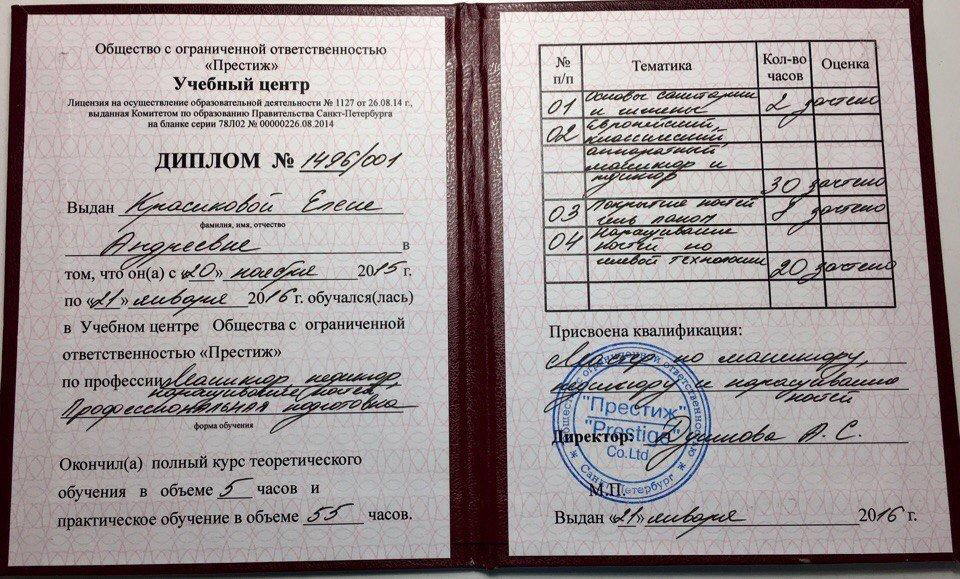 Общество с ограниченной ответственностью
«Престиж»
Учебный центр
Лицензия на осуществление образовательной деятельности № 1127 от 26.08.14 г.,
выданная Комитетом по образованию Правительства Санкт-Петербурга
на бланке серии 78Л02 № 00000226.08.2014
ДИПЛОМ № 1496/001
Выдан Красиковой Елене
фамилия, имя, отчество
Андреевне в
том, что он(а) с «20» ноября 2015 г.
по «21» января 2016 г. обучался(лась)
в Учебном центре Общества с ограниченной
ответственностью «Престиж»
по профессии Маникюр педикюр
наращивание ногтей
Профессиональная подготовка
форма обучения
Окончил(а) полный курс теоретического
обучения в объеме 5 часов и
практическое обучение в объеме 55 часов.
№ п/п Тематика Кол-во часов Оценка
01 Основы санитарии 2 зачтено
и гигиены
02 Европейский,
классический,
аппаратный
маникюр и
педикюр 30 зачтено
03 Покрытие ногтей зачтено
гель лаком
04 Наращивание
ногтей по
гелевой технологии 20 зачтено
Присвоена квалификация:
Мастер по маникюру,
педикюру и наращиванию
ногтей
Директор: А. С.
Общество с ограниченной ответственностью
"Престиж"
"Prestige"
Co.Ltd
Санкт-Петербург
М.П.
Выдан «21» января 2016 г.